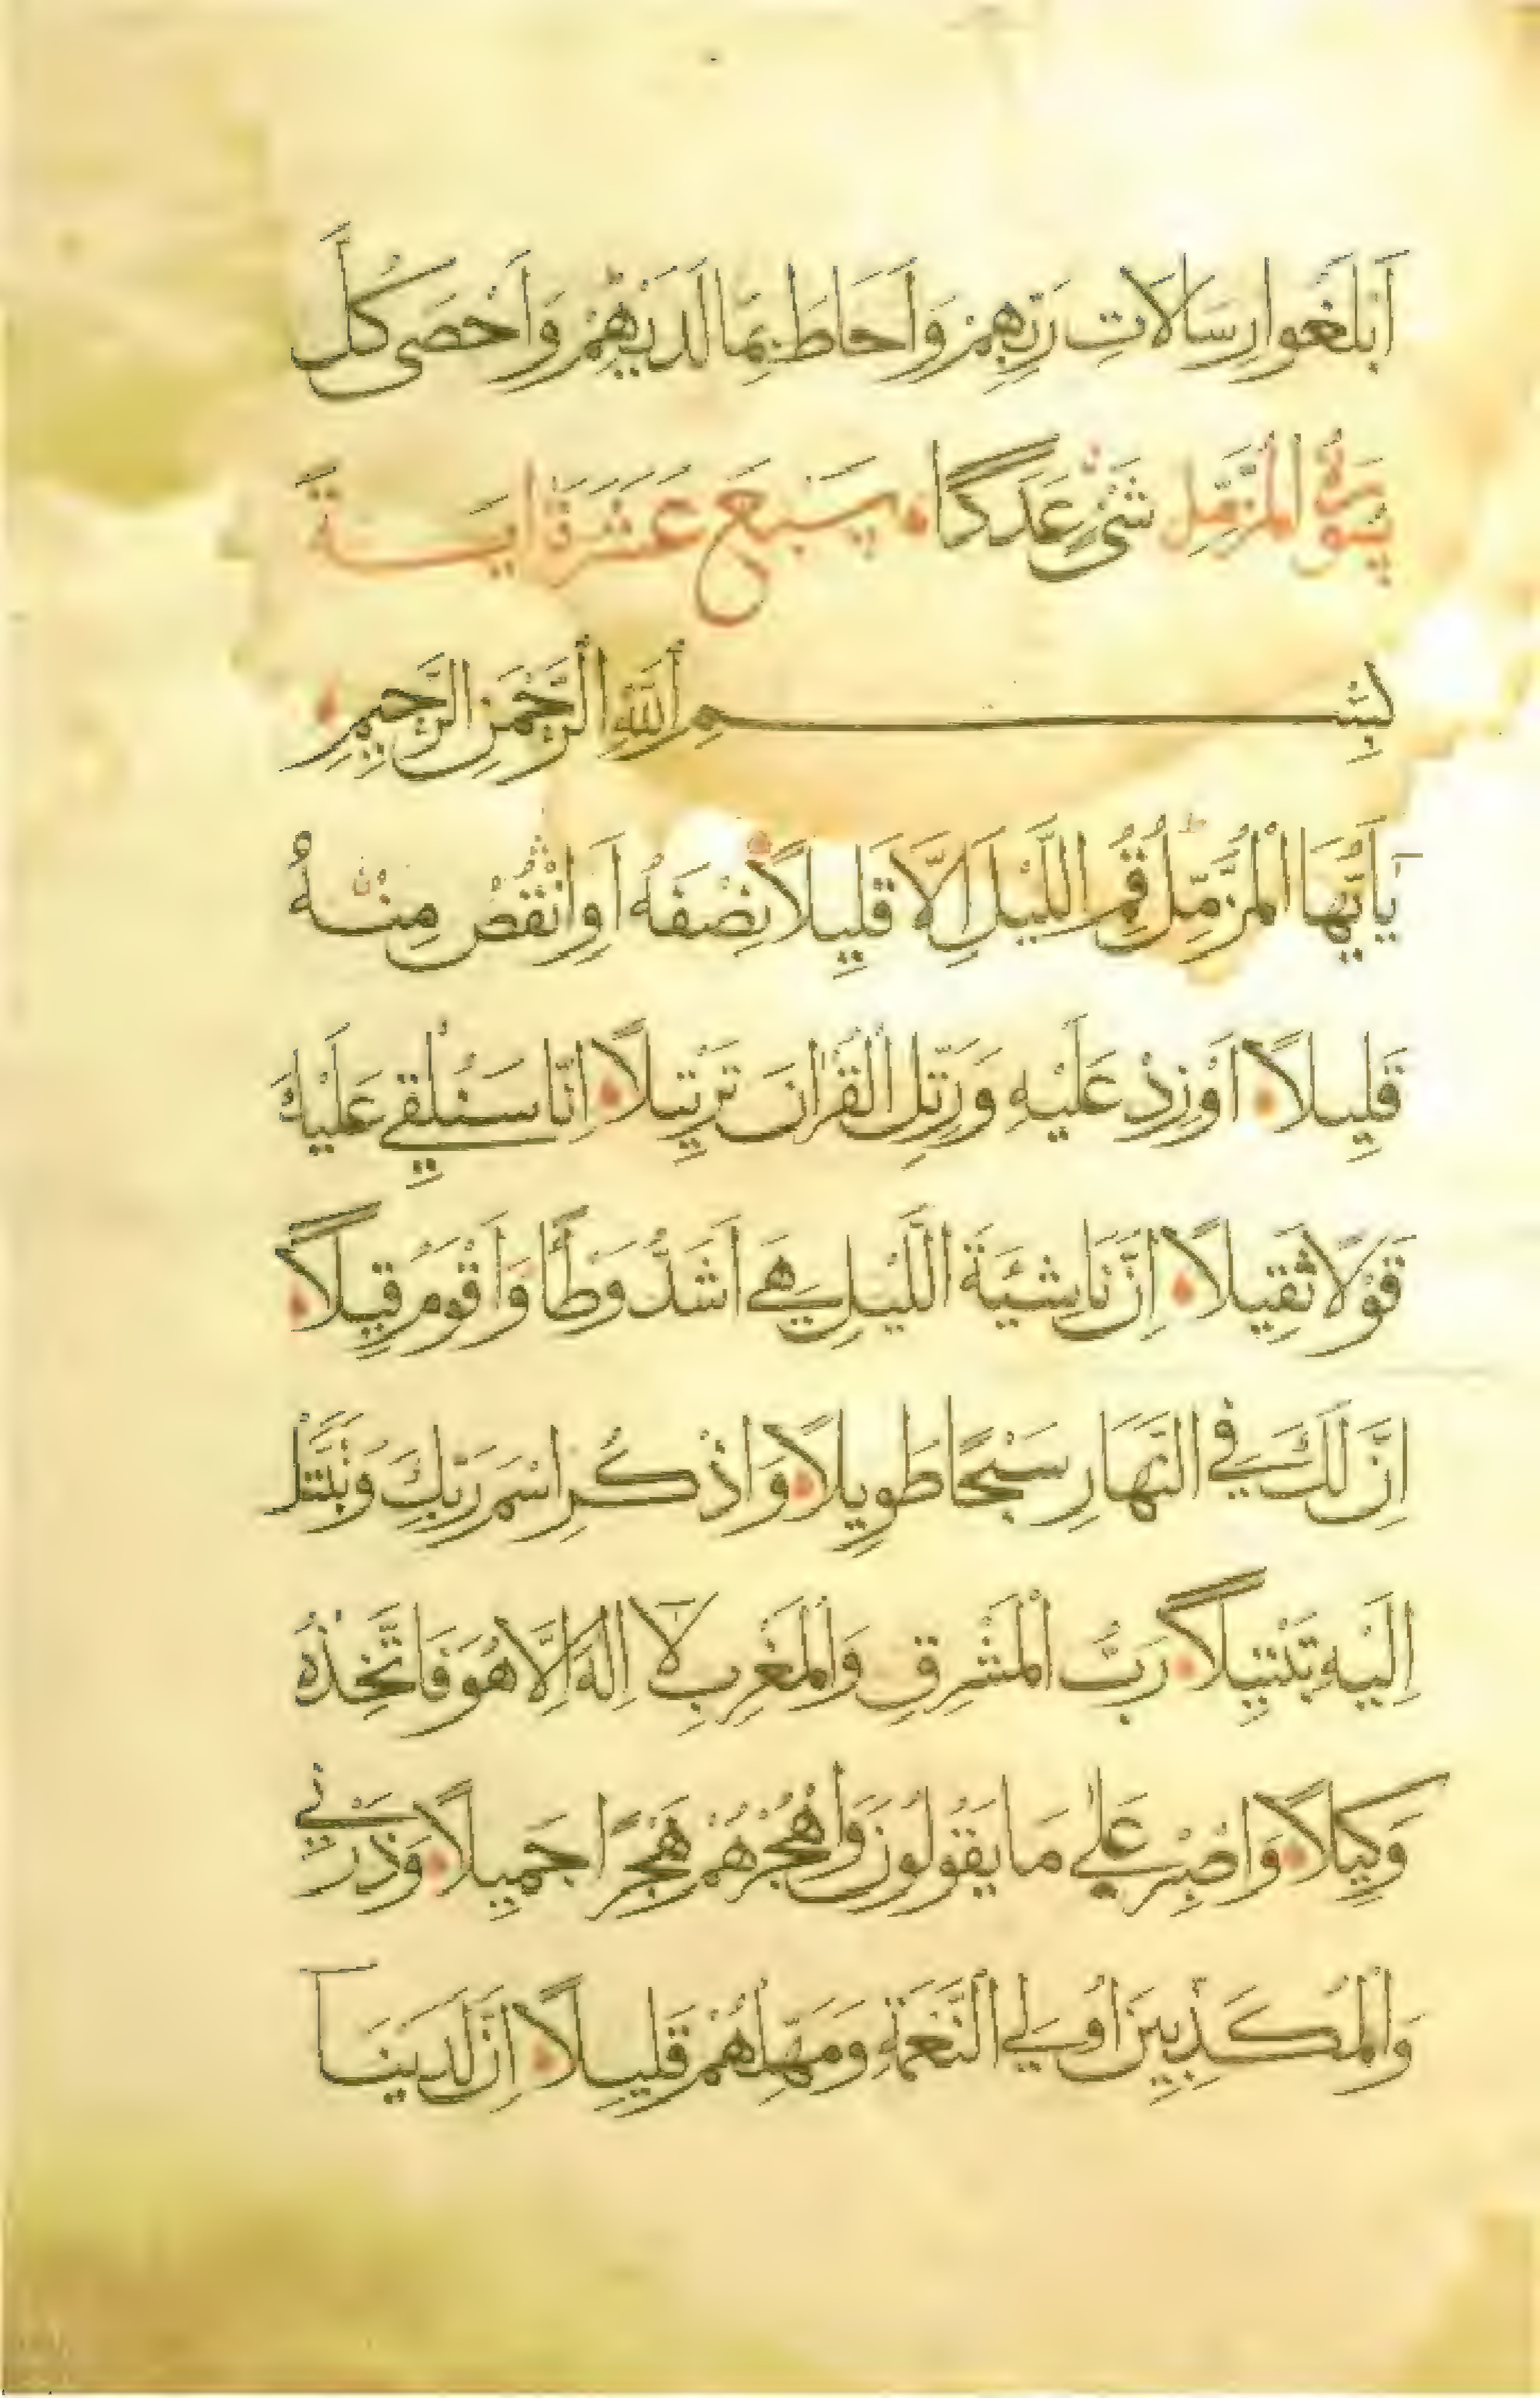 أَبْلَغُوا رِسَالَاتِ رَبِّهِمْ وَأَحَاطَ بِمَا لَدَيْهِمْ وَأَحْصَى كُلَّ
سُورَةُ الْمُزَّمِّلِ شَيْءٍ عَدَدًا سَبْعَ عَشَرَةَ آيَةً
بِسْمِ اللَّهِ الرَّحْمَنِ الرَّحِيمِ
يَا أَيُّهَا الْمُزَّمِّلُ قُمِ اللَّيْلَ إِلَّا قَلِيلًا نِصْفَهُ أَوِ انْقُصْ مِنْهُ
قَلِيلًا أَوْ زِدْ عَلَيْهِ وَرَتِّلِ الْقُرْآنَ تَرْتِيلًا إِنَّا سَنُلْقِي عَلَيْكَ
قَوْلًا ثَقِيلًا إِنَّ نَاشِئَةَ اللَّيْلِ هِيَ أَشَدُّ وَطْأً وَأَقْوَمُ قِيلًا
إِنَّ لَكَ فِي النَّهَارِ سَبْحًا طَوِيلًا وَاذْكُرِ اسْمَ رَبِّكَ وَتَبَتَّلْ
إِلَيْهِ تَبْتِيلًا رَبُّ الْمَشْرِقِ وَالْمَغْرِبِ لَا إِلَهَ إِلَّا هُوَ فَاتَّخِذْهُ
وَكِيلًا وَاصْبِرْ عَلَى مَا يَقُولُونَ وَاهْجُرْهُمْ هَجْرًا جَمِيلًا وَذَرْنِي
وَالْمُكَذِّبِينَ أُولِي النَّعْمَةِ وَمَهِّلْهُمْ قَلِيلًا إِنَّ لَدَيْنَا